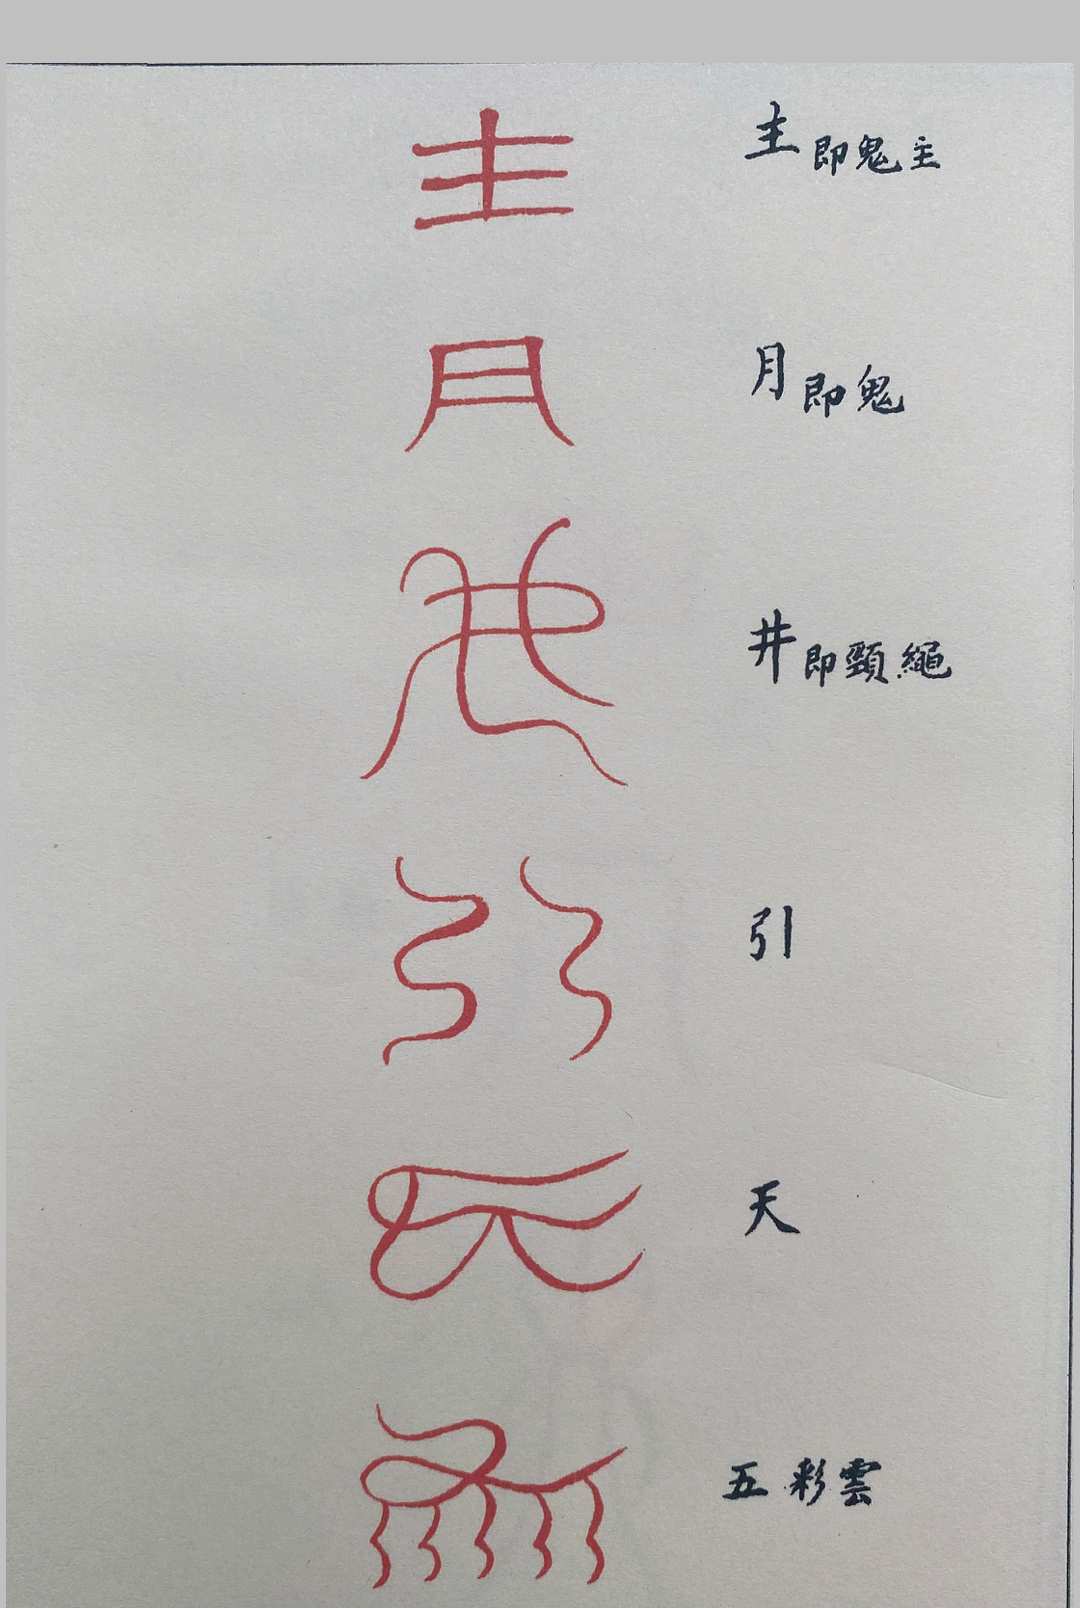 主即鬼主
月即鬼
井即頸繩
引
天
五彩雲